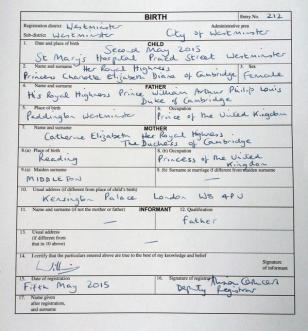 BIRTH Entry No. 212
Registration district Westminster Administrative area
Sub-district Westminster City of Westminster
1. Date and place of birth CHILD
Second May 2015
St Mary's Hospital Praed Street Westminster
2. Name and surname Her Royal Highness 3. Sex
Princess Charlotte Elizabeth Diana of Cambridge Female
4. Name and surname FATHER
His Royal Highness Prince William Arthur Philip Louis
Duke of Cambridge
5. Place of birth 6. Occupation
Paddington Westminster Prince of the United Kingdom
7. Name and surname MOTHER
Catherine Elizabeth Her Royal Highness
The Duchess of Cambridge
8.(a) Place of birth 8. (b) Occupation
Reading Princess of the United
Kingdom
9.(a) Maiden surname 9. (b) Surname at marriage if different from maiden surname
MIDDLETON —
10. Usual address (if different from place of child's birth)
Kensington Palace London W8 4PU
11. Name and surname (if not the mother or father) INFORMANT 12. Qualification
— Father
13. Usual address
(if different from
that in 10 above)
—
14. I certify that the particulars entered above are true to the best of my knowledge and belief
Signature
of informant
15. Date of registration 16. Signature of registrar
Fifth May 2015 Deputy Registrar
17. Name given
after registration,
and surname